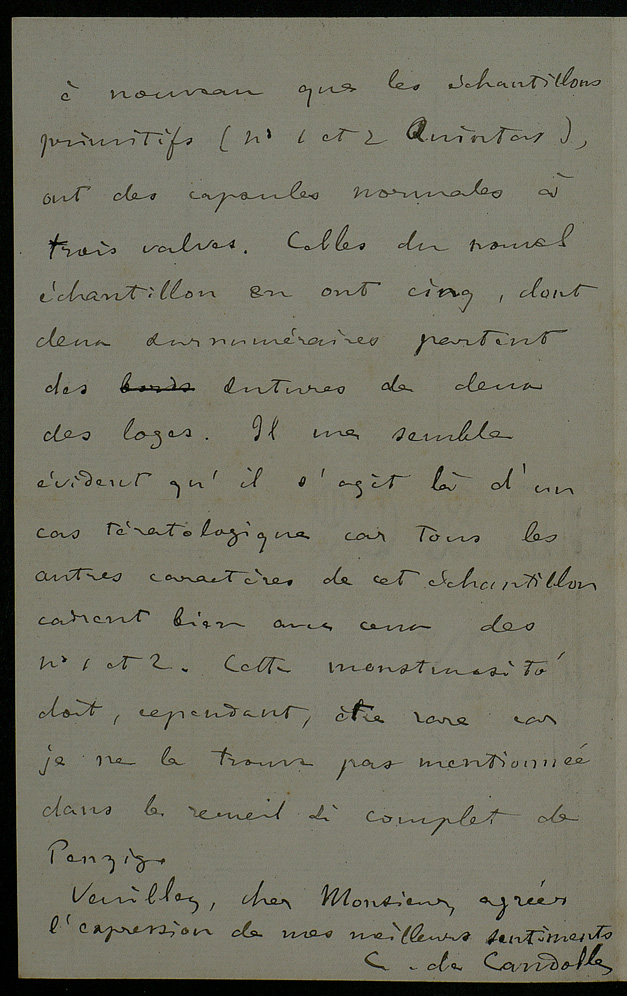 à nouveau que les échantillons
primitifs (nos 1 et 2 Quintas),
ont des capsules normales à
trois valves. Celles du nouvel
échantillon en ont cinq, dont
deux surnuméraires partent
des bords sutures de deux
des loges. Il me semble
évident qu'il s'agit là d'un
cas tératologique car tous les
autres caractères de cet échantillon
cadrent bien avec ceux des
nos 1 et 2. Cette monstruosité
doit, cependant, être rare car
je ne la trouve pas mentionnée
dans le recueil si complet de
Penzig.
Veuillez, cher Monsieur, agréer
l'expression de mes meilleurs sentiments
C. de Candolle